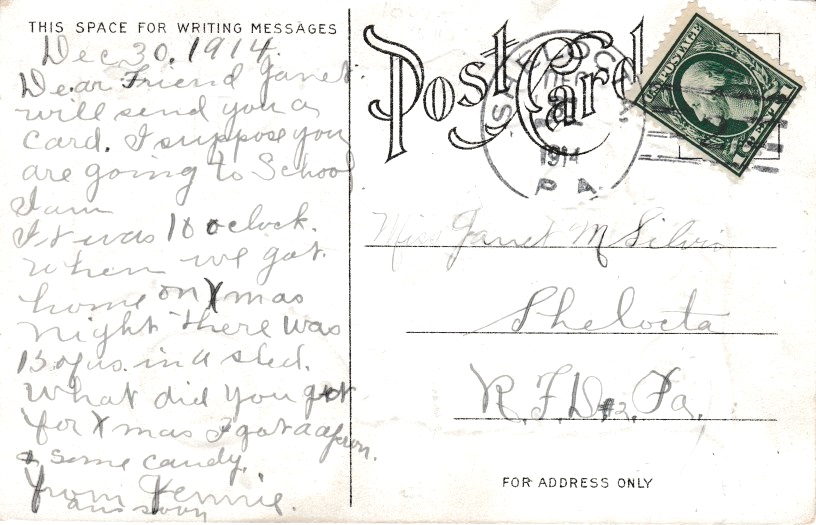 THIS SPACE FOR WRITING MESSAGES
Dec 30, 1914.
Dear Friend Janet
will send you a
card. I suppose you
are going to School
I am
It was 10 oclock.
when we got
home on Xmas
night there was
13 of us. in a sled.
What did you got
for Xmas I got a apron.
& some candy.
from Jennie.
ans soon
Post Card
1914
PA.
U.S. POSTAGE
Miss Janet M Silvis
Shelocta
R. F. D #2, Pa,
FOR ADDRESS ONLY